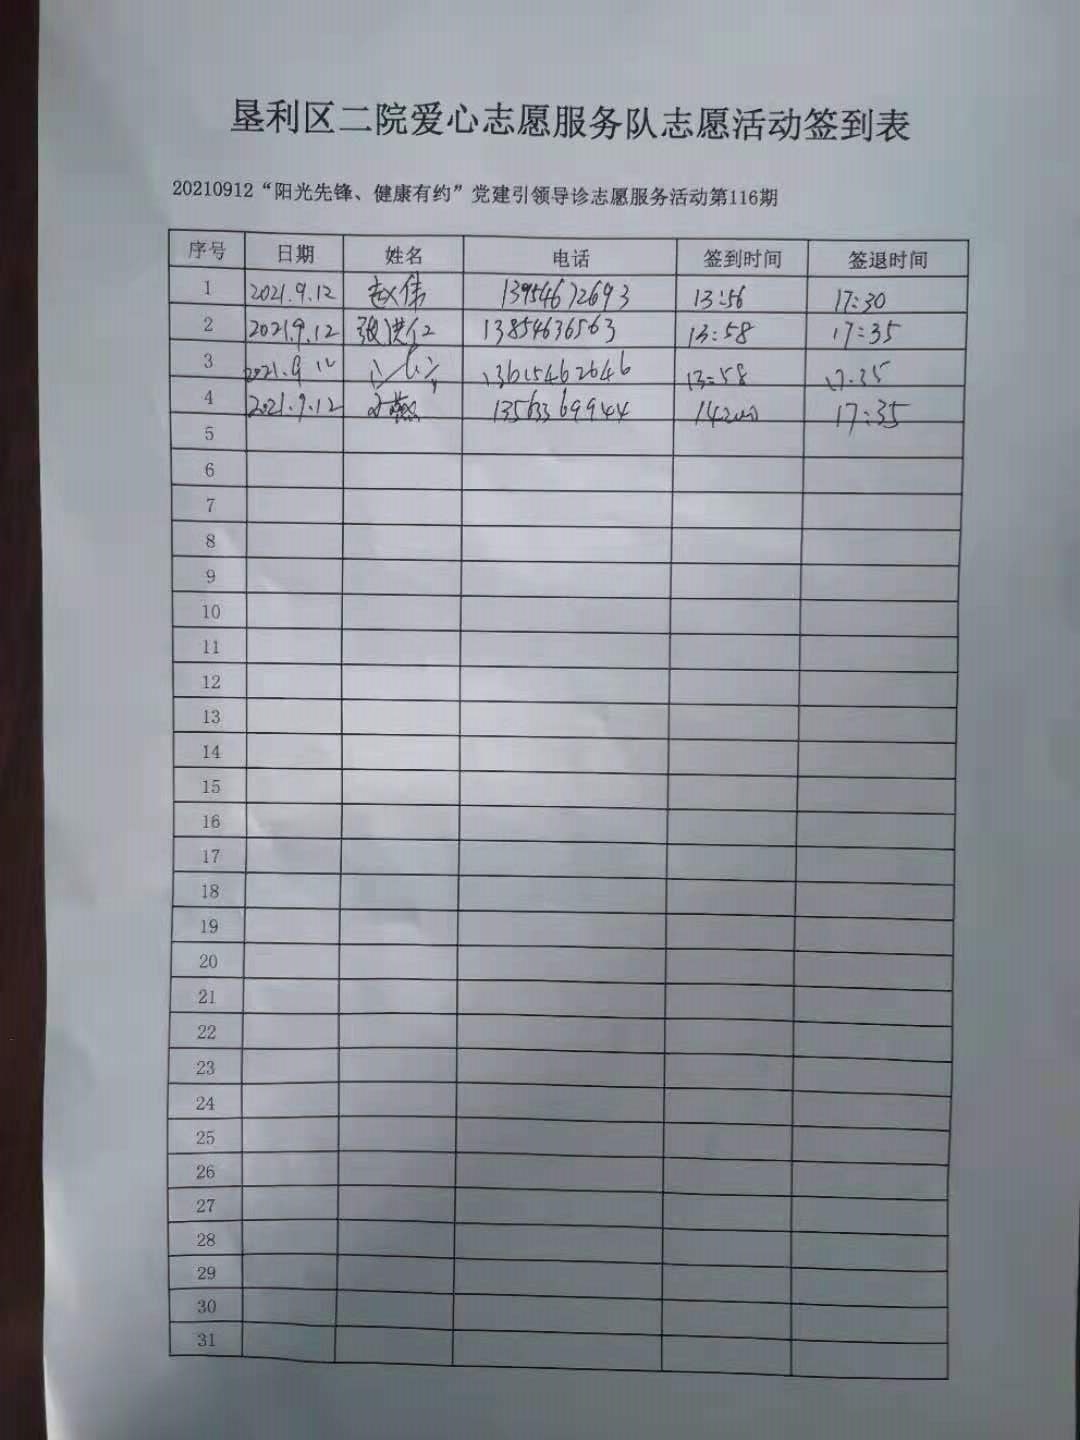 垦利区二院爱心志愿服务队志愿活动签到表
20210912“阳光先锋、健康有约”党建引领导诊志愿服务活动第116期
序号 日期 姓名 电话 签到时间 签退时间
1 2021.9.12 赵伟 13954672693 13:56 17:30
2 2021.9.12 张洪仁 13854636563 13:58 17:35
3 2021.9.12 13615462646 13:58 17:35
4 2021.9.12 13563369944 14:00 17:35
5
6
7
8
9
10
11
12
13
14
15
16
17
18
19
20
21
22
23
24
25
26
27
28
29
30
31